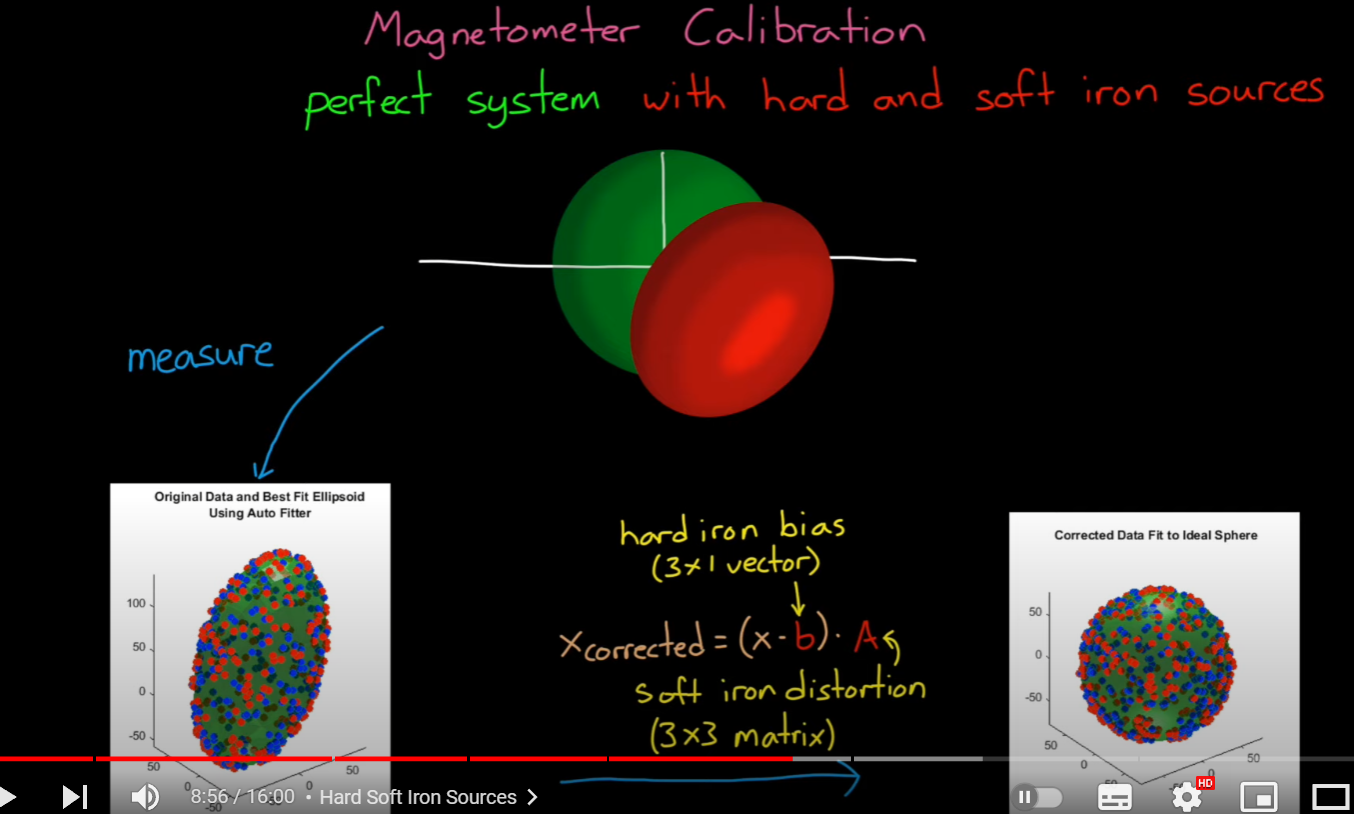 Magnetometer Calibration
perfect system with hard and soft iron sources
measure
Original Data and Best Fit Ellipsoid
Using Auto Fitter
100
50
0
-50
50
0
-50
0
50
hard iron bias
(3×1 vector)
xcorrected = (x - b) · A
soft iron distortion
(3×3 matrix)
Corrected Data Fit to Ideal Sphere
50
0
-50
50
0
0
50
8:56 / 16:00 • Hard Soft Iron Sources
HD